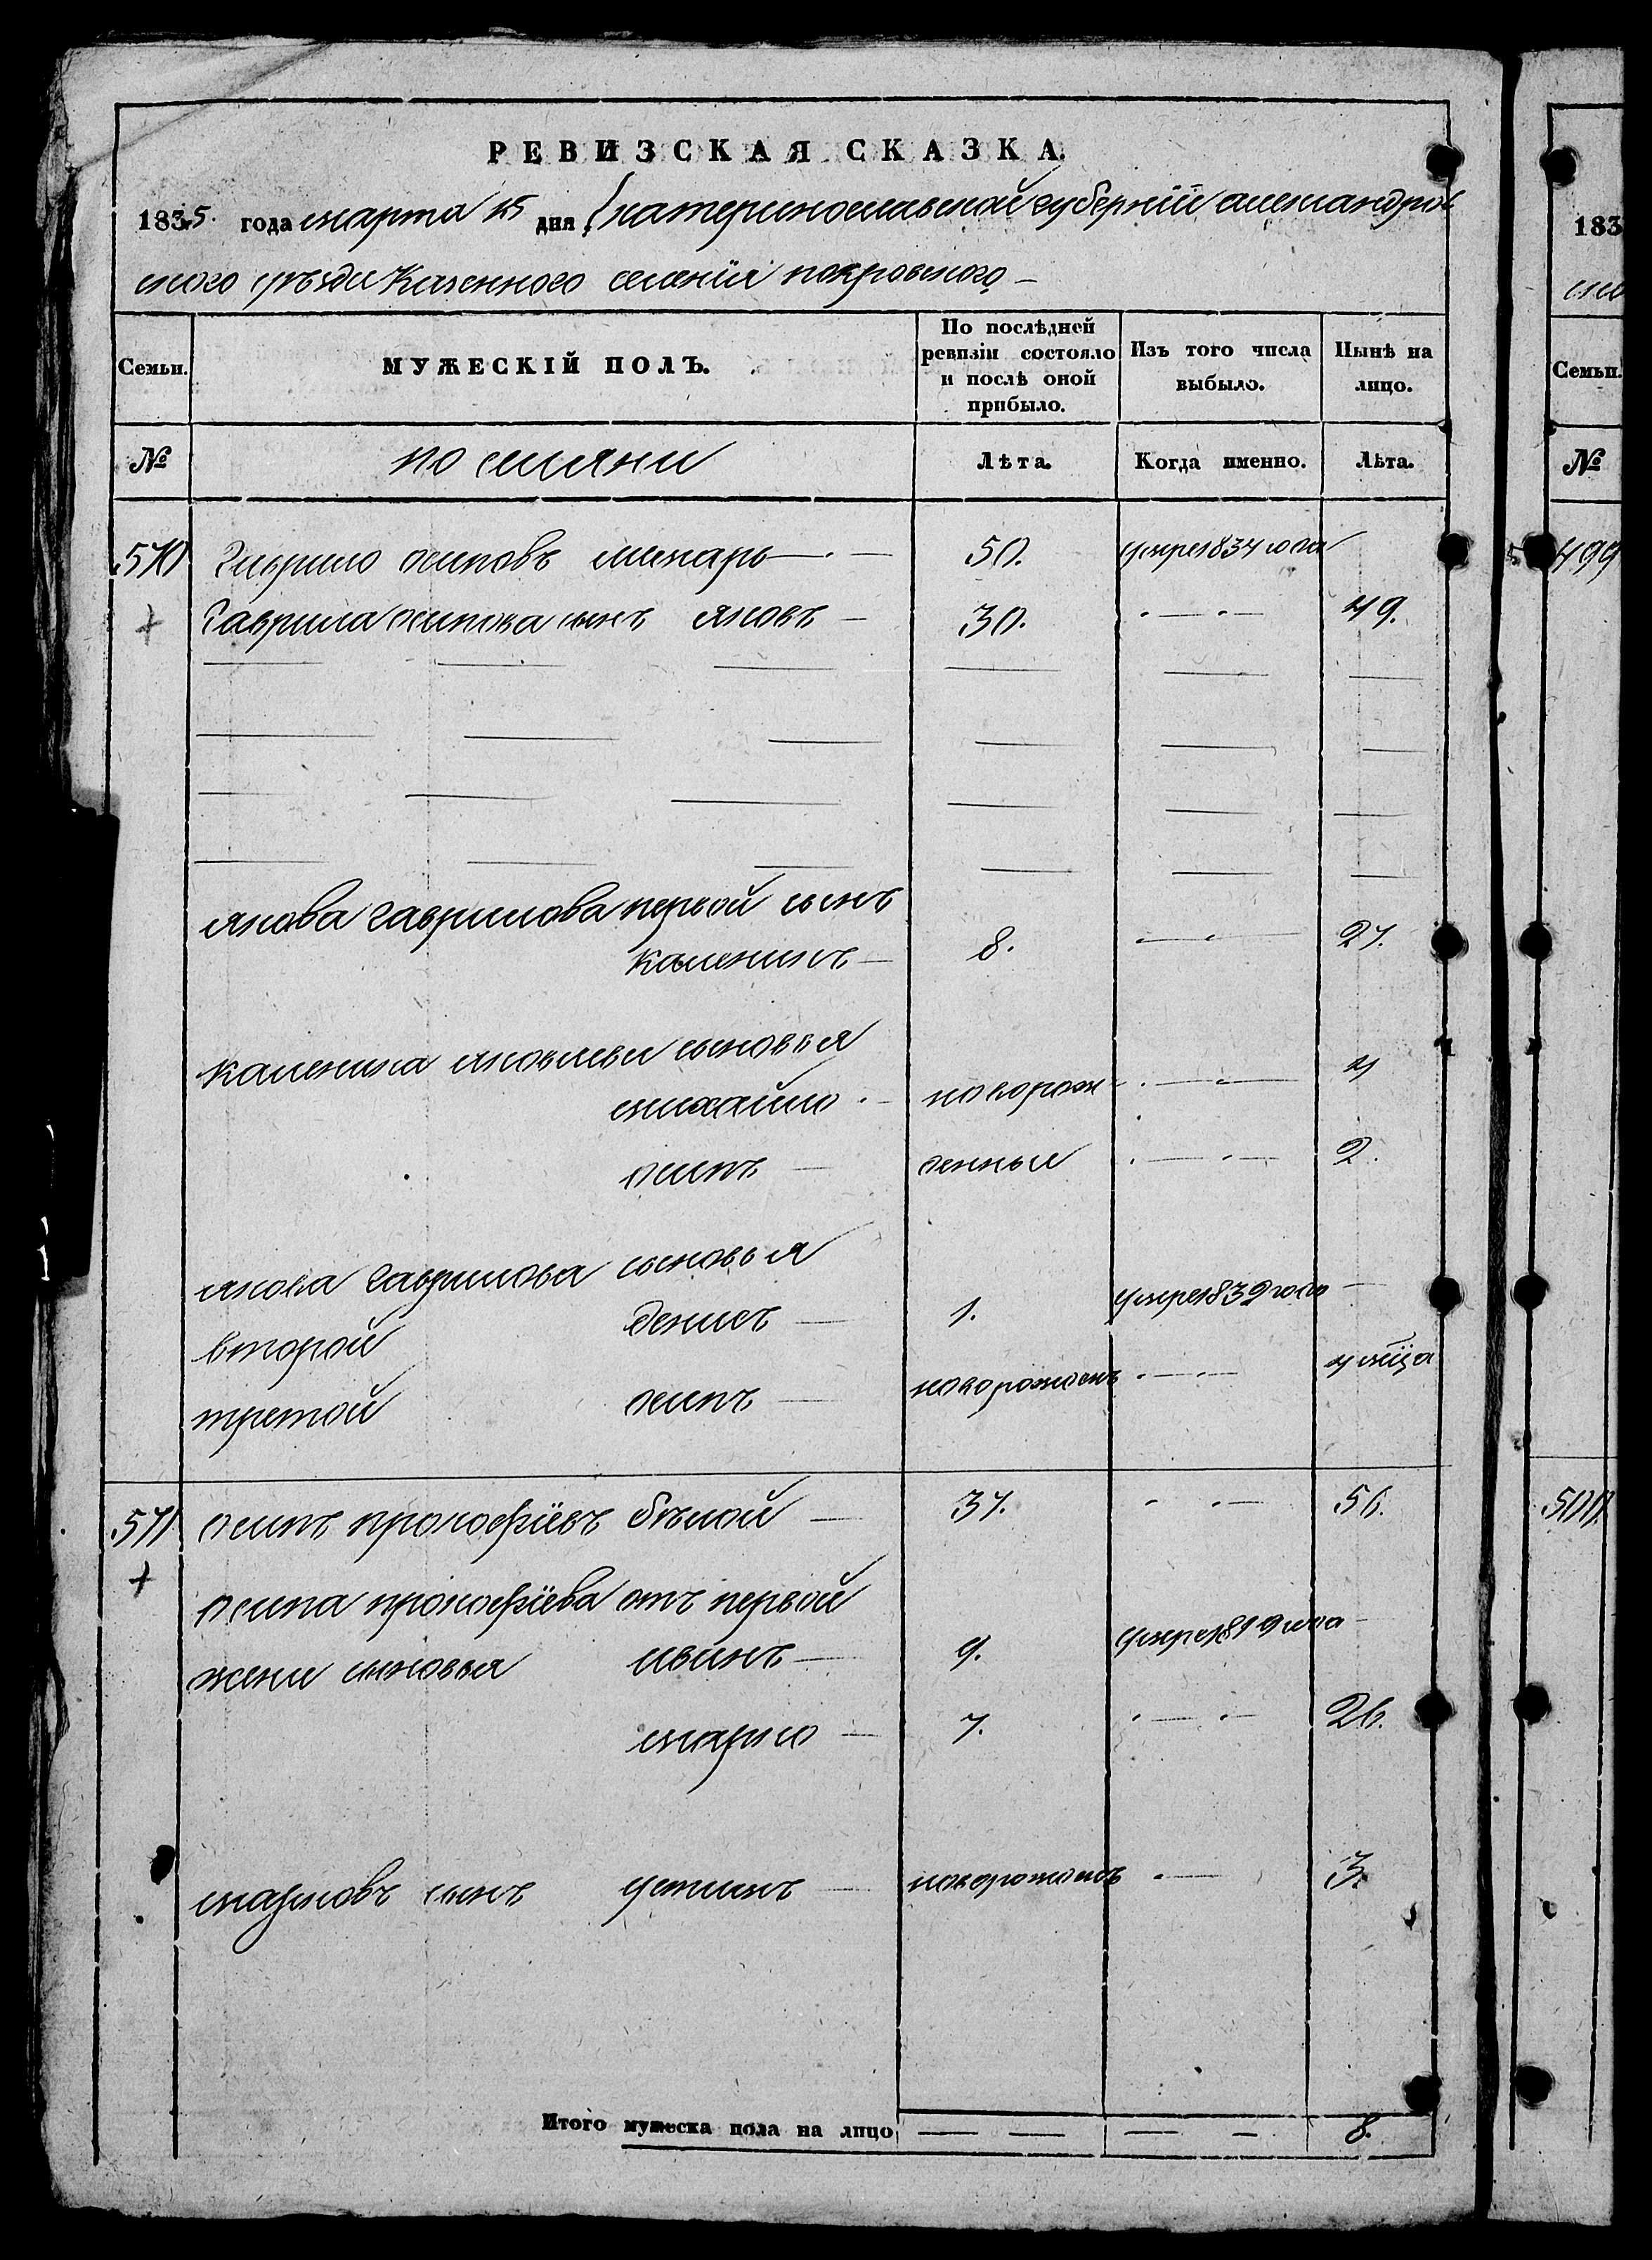 РЕВИЗСКАЯ СКАЗКА.
1835. года марта 15 дня Екатеринославской губернїи александров
ского уѣзда Казенного селенїя покровского
Семьи. МУЖЕСКІЙ ПОЛЪ. По послѣдней ревизіи состояло и послѣ оной прибыло. Изъ того числа выбыло. Нынѣ на лицо.
№ поселяни Лѣта. Когда именно. Лѣта.
570 Гаврило осиповъ 50. умре 1834 года
Гаврила осипова сынъ яковъ 30. 49.
якова гаврилова первой сынъ
каленикъ 8. 27.
каленика яковлева сыновья
михайло новорож 4
осипъ денные 2.
якова гаврилова сыновья
второй денисъ 1. умре 1832 года
третой осипъ новорожденъ
571 осипъ прокофїевъ бѣлой 37. 56.
осипа прокофїева отъ первой
жени сыновья иванъ 9. умре 1819 года
марко 7. 26.
марковъ сынъ устинъ новорожденъ 3.
Итого мужеска пола на лицо 8.
183
Семьи.
№
499
500